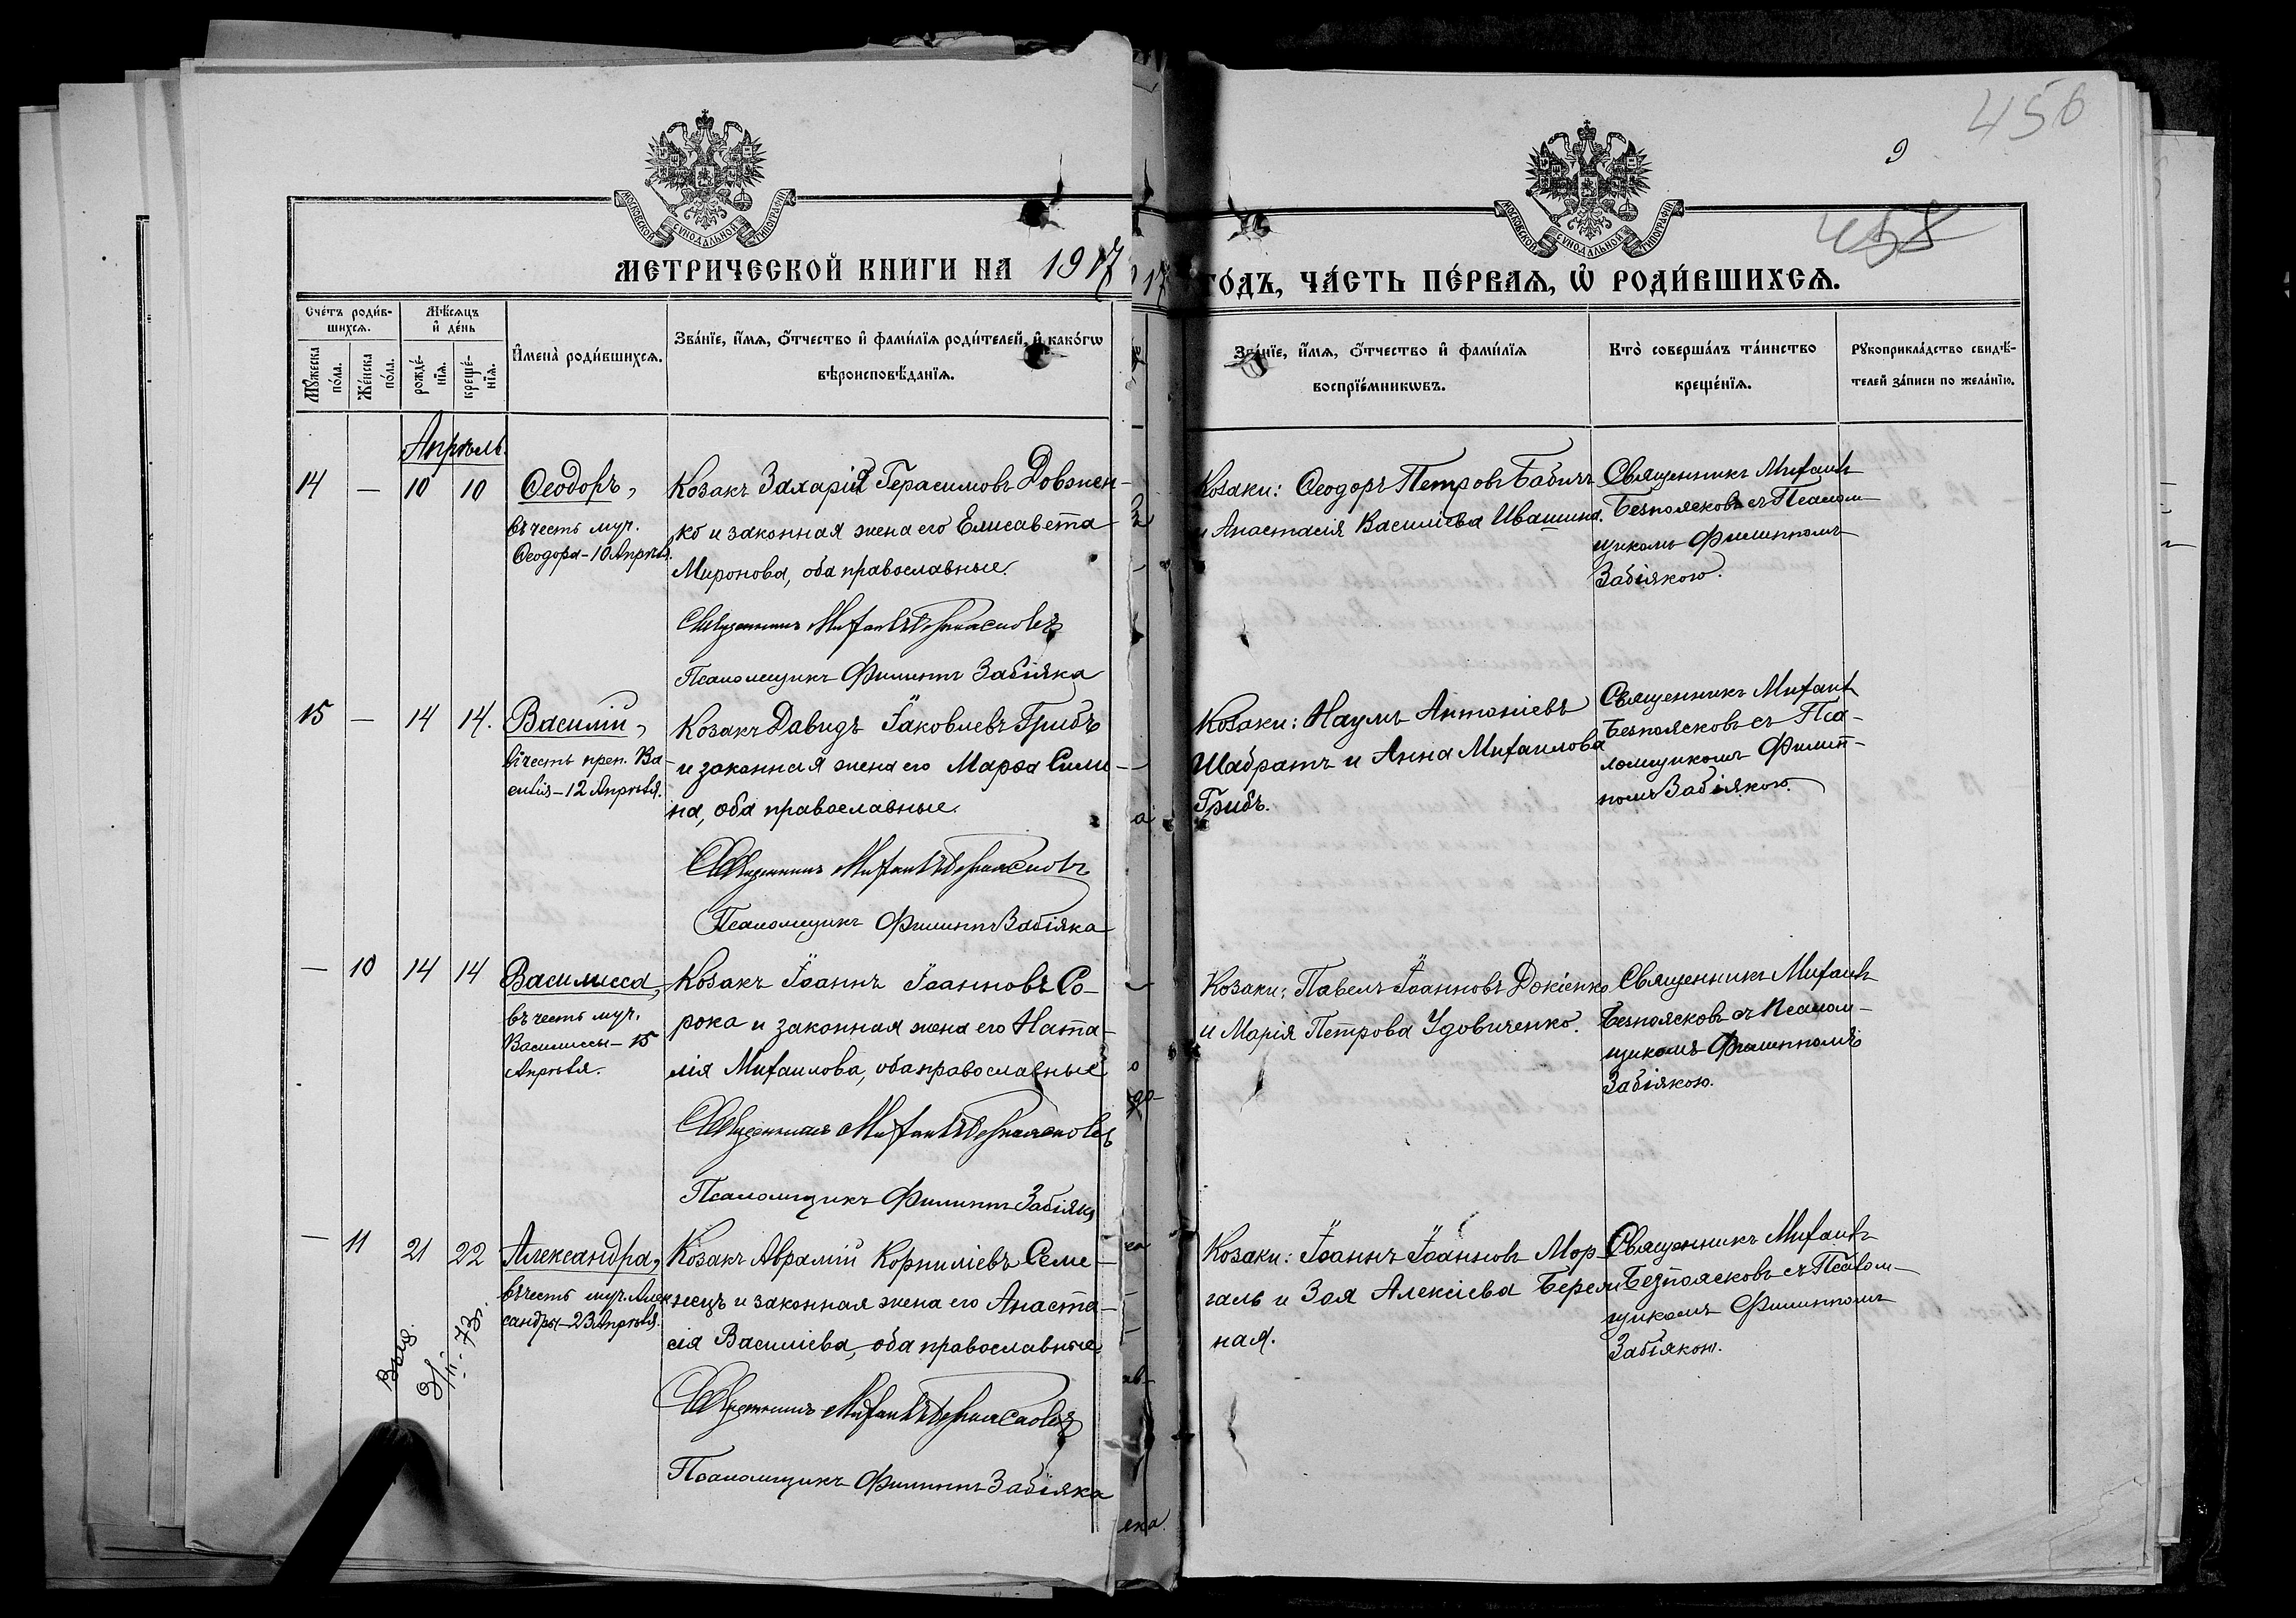 456
9
458
МОСКОВСКОЙ СѴНОДАЛЬНОЙ ТИПОГРАФІИ
МОСКОВСКОЙ СѴНОДАЛЬНОЙ ТИПОГРАФІИ
МЕТРИЧЕСКОЙ КНИГИ НА 1917
ГО́ДЪ, ЧА́СТЬ ПЕ́РВАѦ, Ѡ҆ РОДИ́ВШИХСѦ.
Сче́тъ роди́в-
шихсѧ.
Мѣ́сѧцъ
и҆ де́нь
Мꙋ́жеска
по́ла.
Же́нска
по́ла.
рожде́-
нїѧ.
креще́-
нїѧ.
И҆мена̀ роди́вшихсѧ.
Зва́нїе, и҆́мѧ, ѻ҆́тчество и҆ фами́лїѧ роди́телей, и҆ како́гѡ
вѣроисповѣ́данїѧ.
Зва́нїе, и҆́мѧ, ѻ҆́тчество и҆ фами́лїѧ
воспрїе́мникѡвъ.
Кто̀ соверша́лъ та́инство
креще́нїѧ.
Рꙋкоприкла́дство свидѣ́-
телей за́писи по жела́нїю.
Апрѣль.
14 — 10 10 Ѳеодоръ,
въ честь муч.
Ѳеодора – 10 Апрѣля.
Козакъ Захарій Герасимовъ Довжен-
ко и законная жена его Елисавета
Миронова, оба православные.
Священникъ Михаилъ Безпоясковъ
Псаломщикъ Филиппъ Забіяка
Козаки: Ѳеодоръ Петровъ Бабичъ
и Анастасія Василіева Ивашина.
Священникъ Михаилъ
Безпоясковъ съ Псалом-
щикомъ Филиппомъ
Забіякою.
15 — 14 14. Василій,
въ честь преп. Ва-
силія – 12 Апрѣля.
Козакъ Давидъ Іаковлевъ Грибъ
и законная жена его Марѳа Сими-
на, оба православные.
Священникъ Михаилъ Безпоясковъ
Псаломщикъ Филиппъ Забіяка
Козаки: Наумъ Антоніевъ
Шабратъ и Анна Михаилова
Грибъ.
Священникъ Михаилъ
Безпоясковъ съ Пса-
ломщикомъ Филип-
помъ Забіякою.
— 10 14 14 Василисса,
въ честь муч.
Василиссы – 15
Апрѣля.
Козакъ Іоаннъ Іоанновъ Со-
рока и законная жена его Ната-
лія Михаилова, оба православные
Священникъ Михаилъ Безпоясковъ
Псаломщикъ Филиппъ Забіяка
Козаки: Павелъ Іоанновъ Докіенко
и Марія Петрова Удовиченко.
Священникъ Михаилъ
Безпоясковъ съ Псалом-
щикомъ Филиппомъ
Забіякою.
— 11 21 22 Александра,
въ честь муч. Алек-
сандры – 23 Апрѣля.
Козакъ Аврамій Корниліевъ Семе-
нецъ и законная жена его Анаста-
сія Василіева, оба православные.
Священникъ Михаилъ Безпоясковъ
Псаломщикъ Филиппъ Забіяка
Козаки: Іоаннъ Іоанновъ Мор-
галь и Зоя Алексіева Берем-
ная.
Священникъ Михаилъ
Безпоясковъ съ Псалом-
щикомъ Филиппомъ
Забіякою.